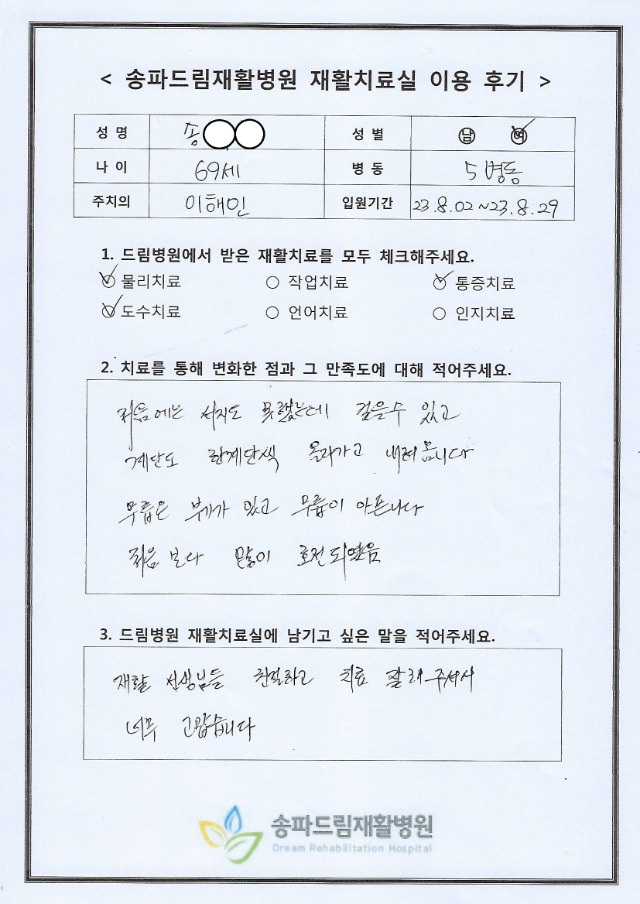 < 송파드림재활병원 재활치료실 이용 후기 >
성 명 송 성 별 남 여
나 이 69세 병 동 5병동
주치의 이해민 입원기간 23.8.02~23.8.29
1. 드림병원에서 받은 재활치료를 모두 체크해주세요.
물리치료 작업치료 통증치료
도수치료 언어치료 인지치료
2. 치료를 통해 변화한 점과 그 만족도에 대해 적어주세요.
처음에는 서지도 못했는데 걸을수 있고
계단도 한계단씩 올라가고 내려옵니다
무릎은 부기가 있고 무릎이 아픈니다
처음 보다 많이 호전되였음
3. 드림병원 재활치료실에 남기고 싶은 말을 적어주세요.
재활 선생님들 친절하고 치료 잘해주셔서
너무 고맙습니다
송파드림재활병원
Dream Rehabilitation Hospital